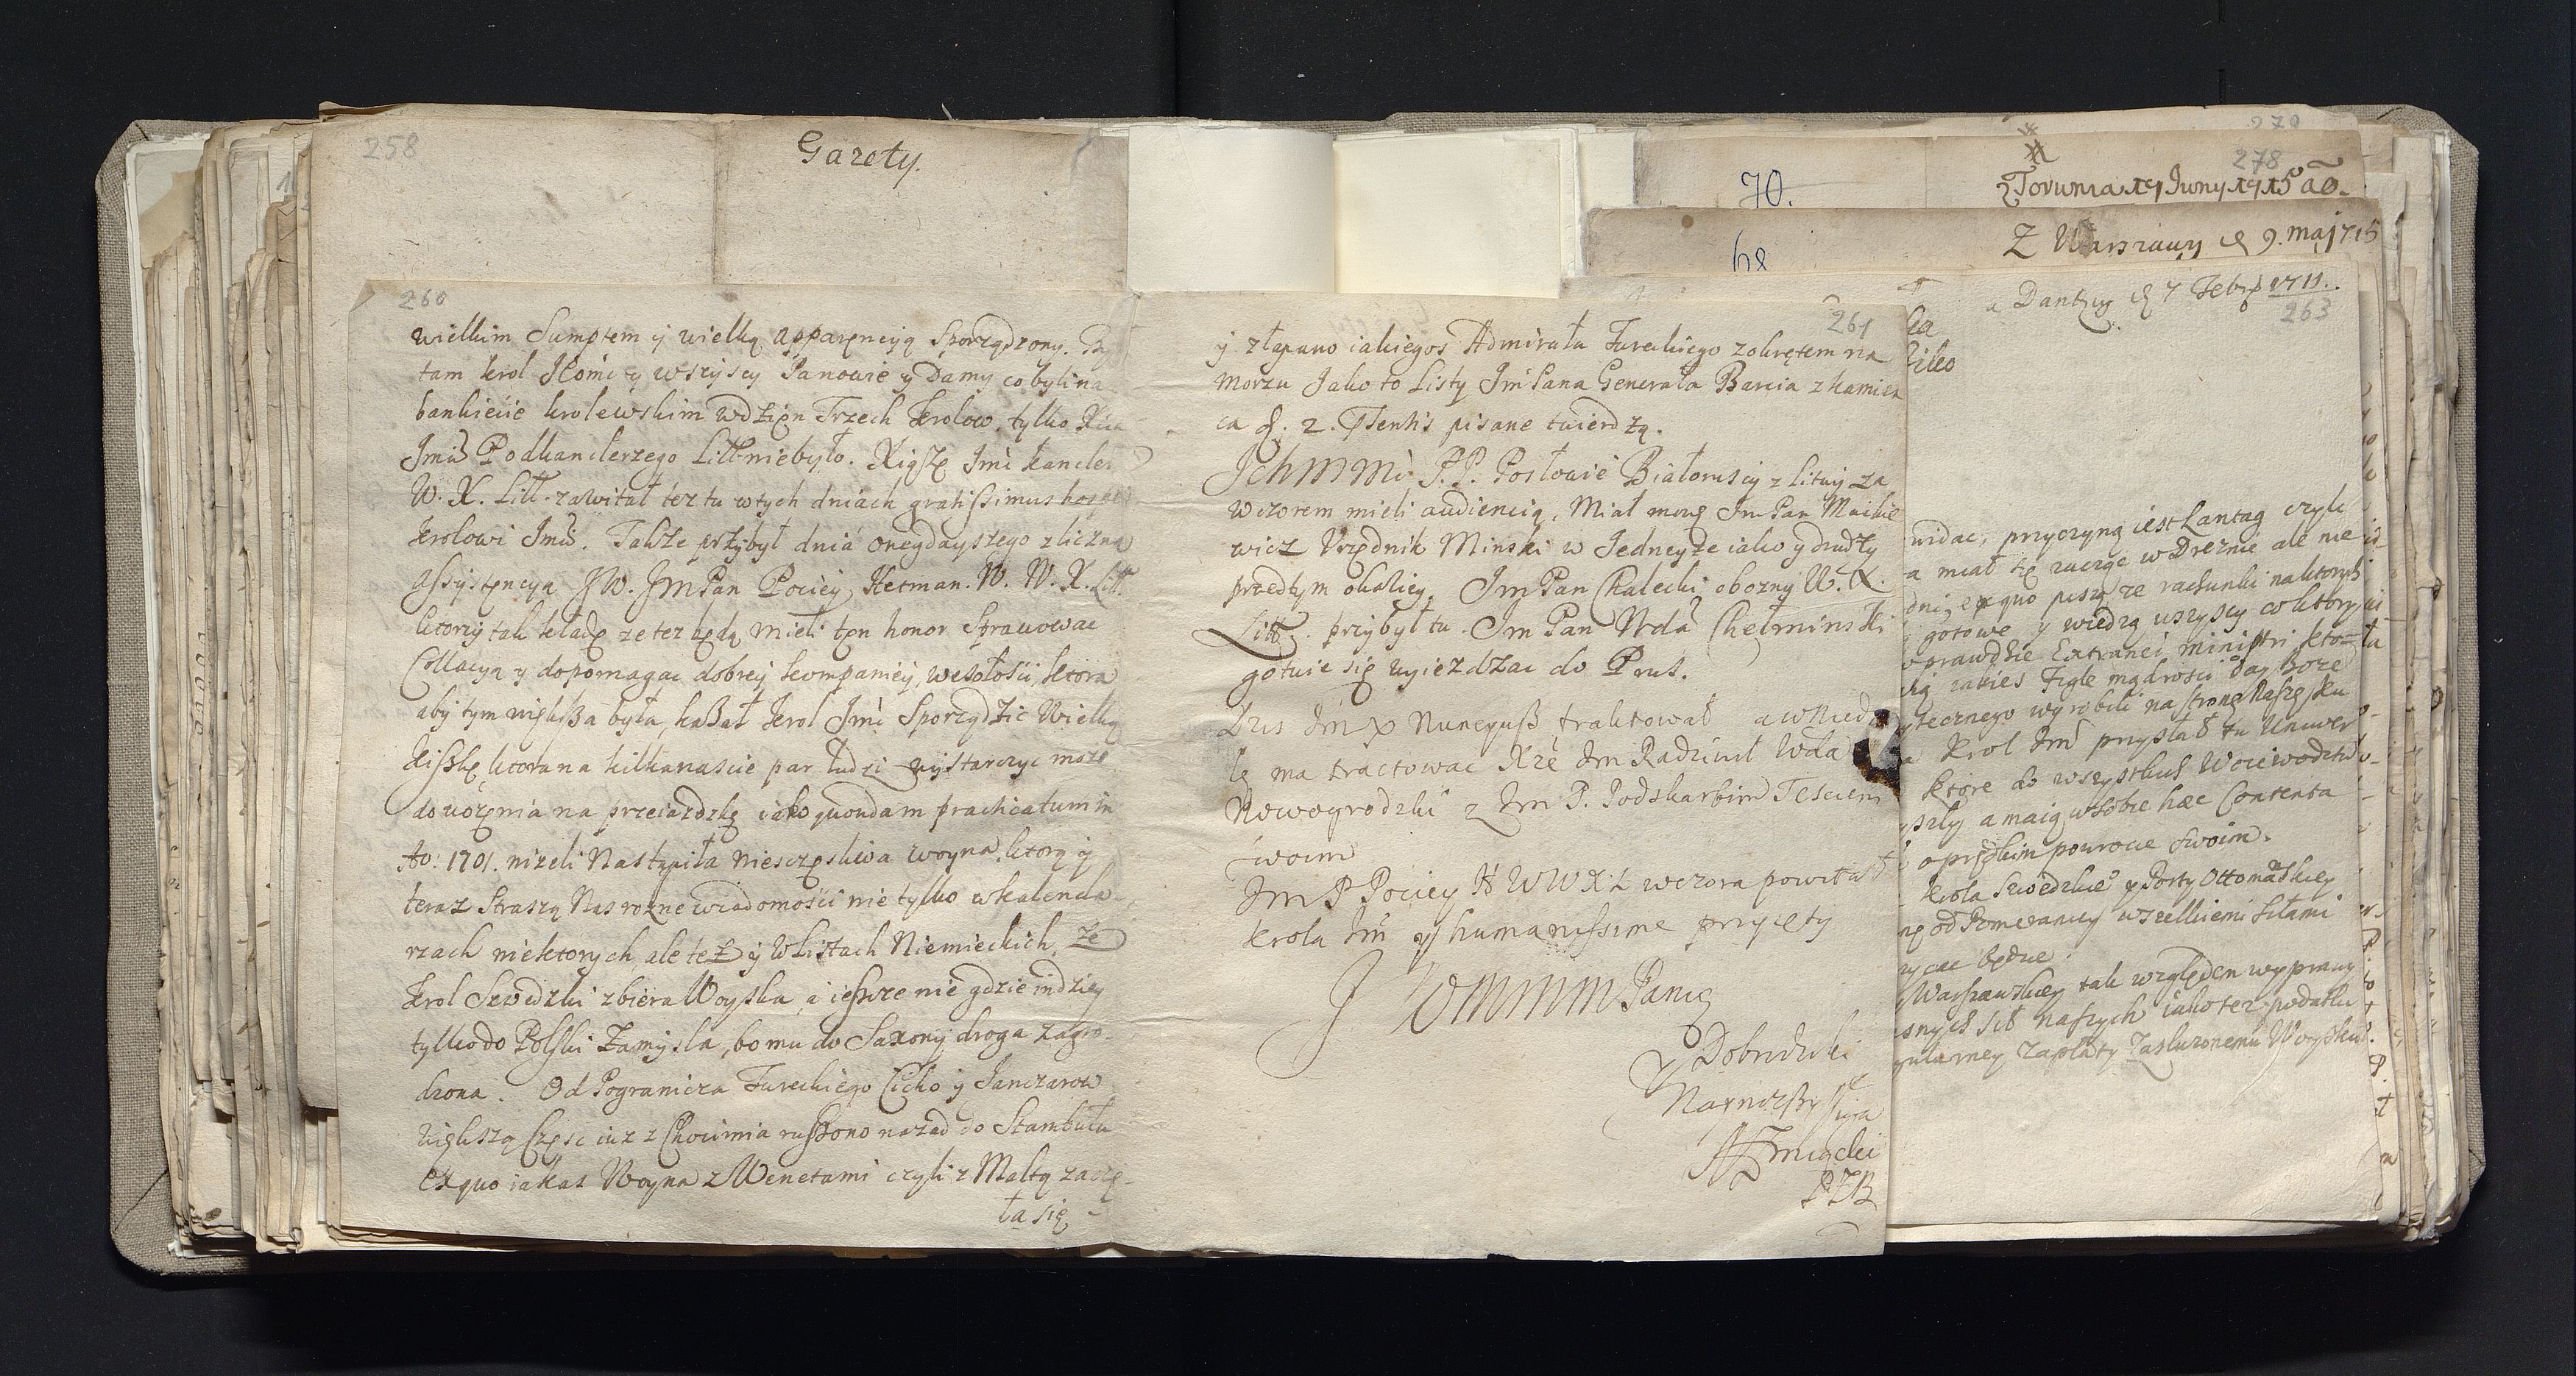 258
Gazety.
260
wielkim Sumptem y wielką apparencyą Sporządzony. By
tam krol JEomć y wszyscy Panowie y Damy co byli na
bankiecie krolewskim wdzięn Trzech krolow, tylko
Podkanclerzego Litt niebyło. Xiąże Jmć kancler
W. X. Litt. zawitał tez tu wtych dniach gratissimus hospes
krolowi Jmći. Także przybył dnia onegdayszego zliczną
assystęncyą JW. JmPan Pociey Hetman. W. W. X. Litt.
ktorzy tak kładę ze tez będą mieli ten honor Sprawowac
Collacyą y dopomagac dobrey kompaniey, wesołosci, ktora
aby tym więkßa była, kaßał krol Jmć Sporządzic Wielką
kißkę ktora na kilkanascie par ludzi wystarczyc może
do wożęnia na przeiazdzkę iako quondam practicatum in
Ao: 1701. nizeli Nastąpiła niesczęsliwa woyna, ktorą y
teraz Straszą Nas rozne wiadomosci nie tylko wkalenda
rzach niektorych ale też y wListach Niemieckich, że
krol Szwedzki zbiera Woyska, a ieszcze nie gdzieindziey
tylko do Polski Zamysla, bo mu do Saxony droga zagro-
dzona. Od Pogranicza Tureckiego Cicho y Janczarow
większą Częsc iuz z Chocimia rußono nazad do Stambułu
Ex quo iakas Woyna z Wenetami czyli z Maltą zaczę-
ła się
261
y złapano iakiegos Admirała Tureckiego zokrętem na
morzu Jako to Listy JmPana Generała Barcia z kamien
ca d. 2. Presentis pisane twierdzą.
Ich MMć P.P. Posłowie Białoruscy z Litwy za
wczorem mieli audiencią, Miał mowę Jm Pan
wicz Urzędnik Minski w Jedneyże iako y drudzy
przedtym okoliey. Jm Pan Chalecki obozny W. X.
Litt. przybył tu. Jm Pan Wda Chełminski
gotuie się wyiezdzac do Prus.
Dzis Jm X Nuncyuß traktował a wNiedzi
lę ma tractowac Xże Jm Radziwł Wda
Nowogrodzki z Jm P. Podskarbim Tesciem
swoim
Jm P Pociey H W W X L wczora powitał
krola Jm y humanissime przyięty
J WMMM Pana
y Dobrodzki
Nayniższy Sługa
70.
68
279
278
z Torunia 19 Juny 1715 ao.
Z Warszawy d 9. maj 715
a Dantzig d 7 Febr 1711.
263
widac, przyczyną iest Lantag czyli
a miał się zacząc w Dreznie ale nie is
dni, ex quo piszą ze rachunki naktorych
gotowe y wiedzą wszyscy co ktory
prawdzie Extranei ministri
iakies Figle mądrosci day Boze
ytecznego wyrobili na stronę Naszę
krol Jmć przysłał tu Uniwer
ktore do wszystkich Woiewodztw
szły a maią wsobie hæc Contenta
o prędkim powrocie swoim.
krola Szwedzkie y Porty Ottomanskiey
od Pomeraniey wszelkiemi siłami
ycac będzie.
Warszawskiey tak względem wyprawy
snych sił naszych iako tez podatku
gularney zapłaty Zasłuzonemu Woysku.